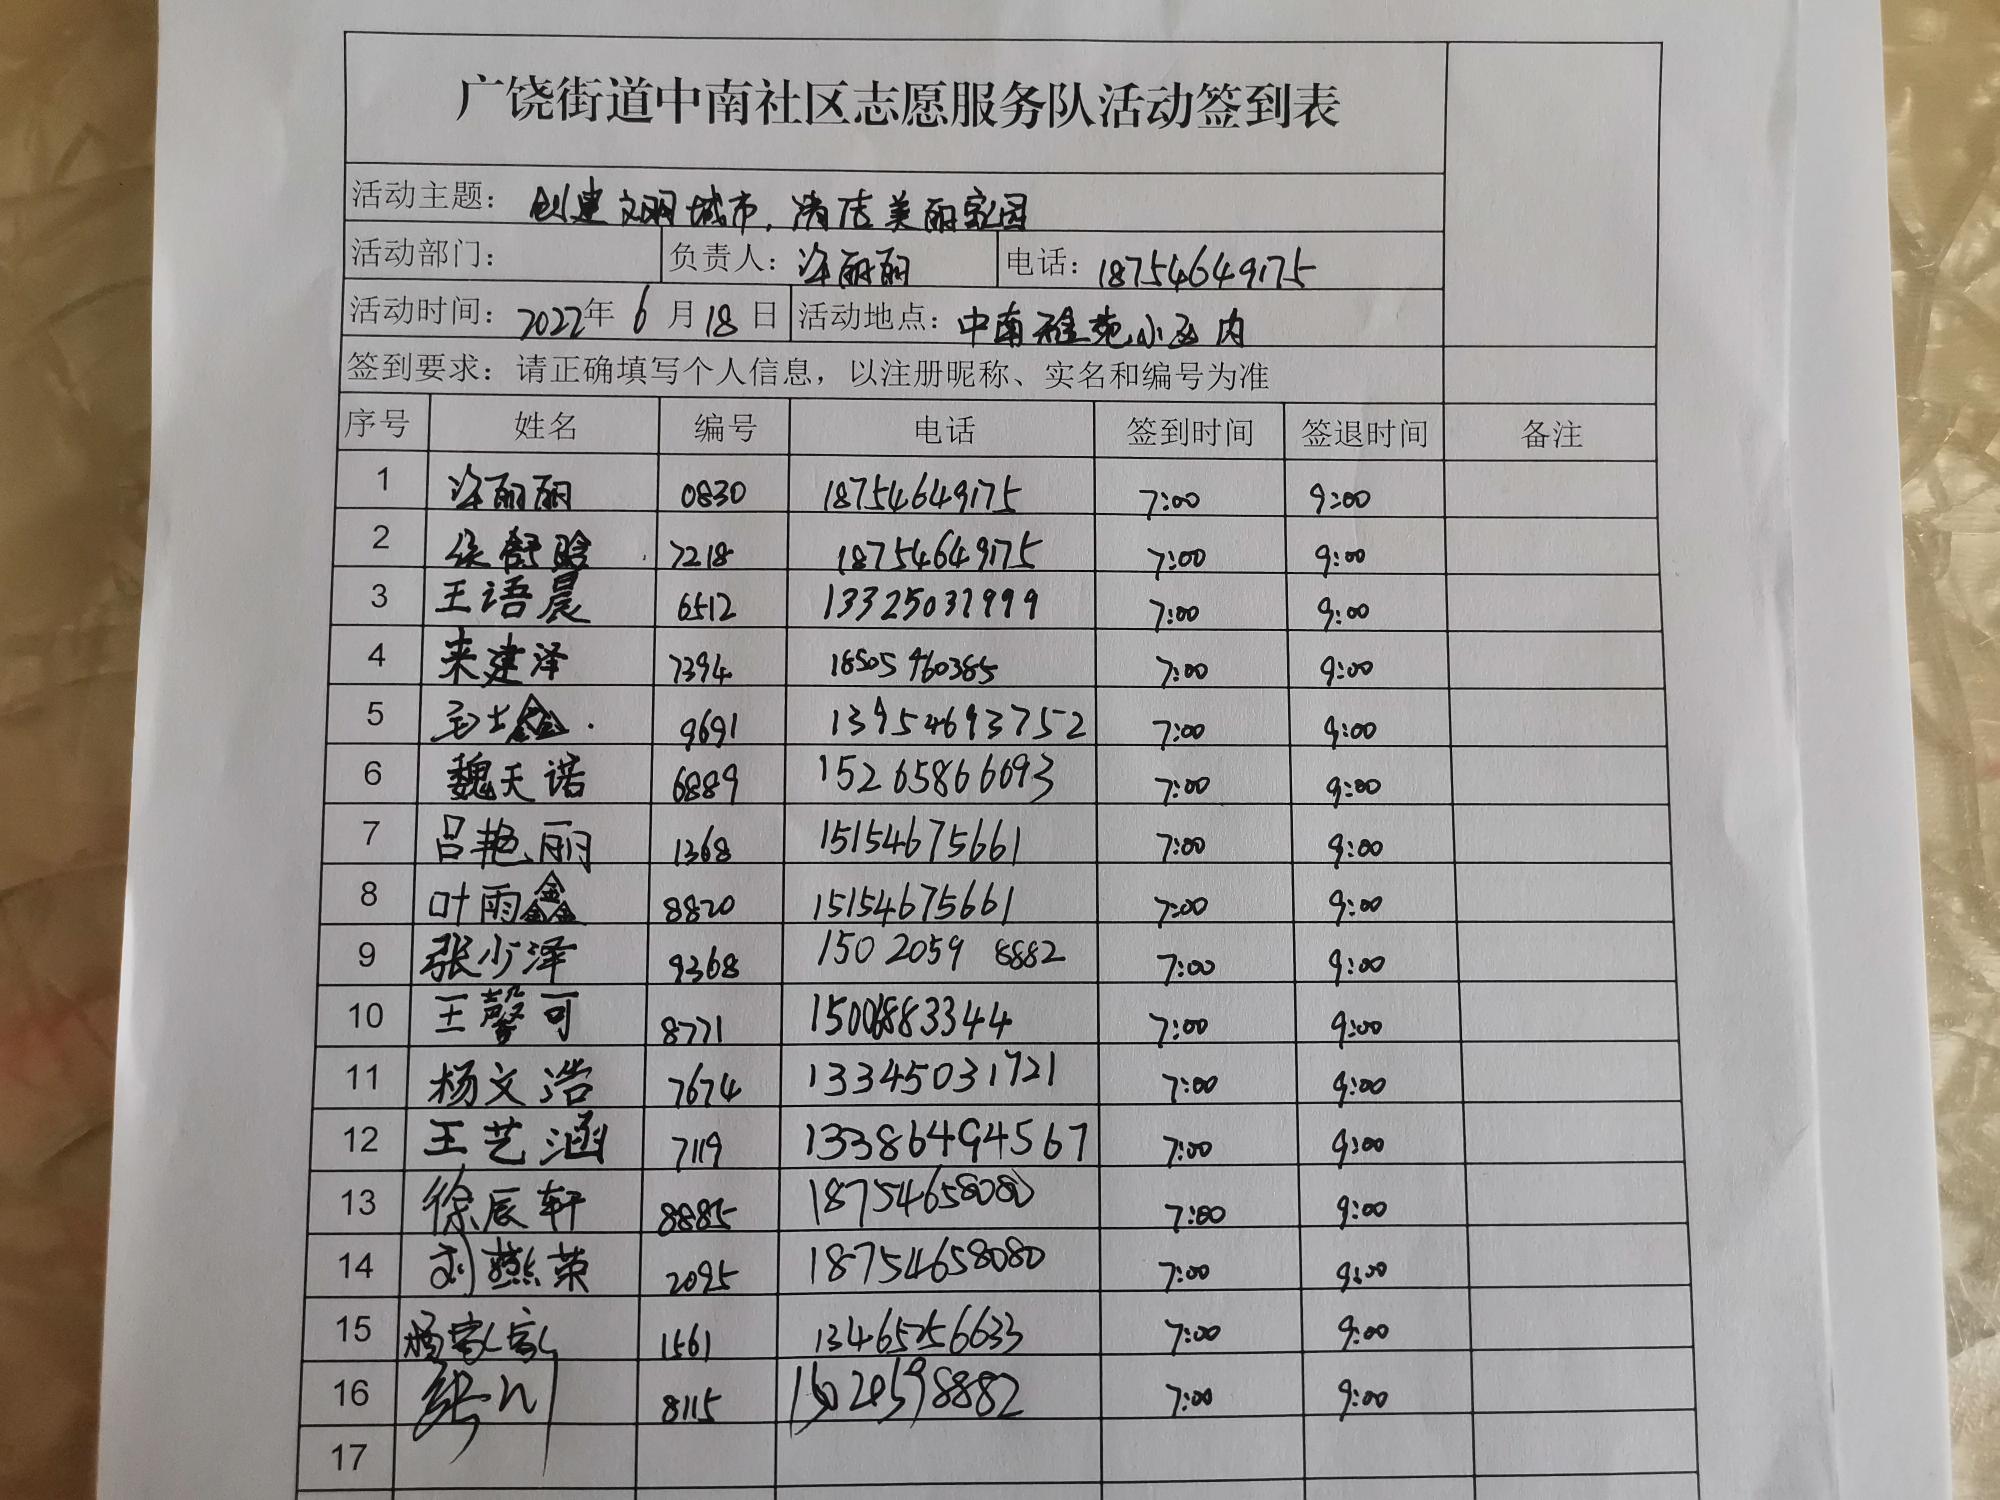 广饶街道中南社区志愿服务队活动签到表
活动主题: 创建文明城市,清洁美丽家园
活动部门: 负责人: 丽丽 电话: 18754649175
活动时间: 2022年 6 月 18 日 活动地点: 中南雅苑小区内
签到要求: 请正确填写个人信息,以注册昵称、实名和编号为准
序号 姓名 编号 电话 签到时间 签退时间 备注
1 丽丽 0830 18754649175 7:00 9:00
2 舒晗 7218 18754649175 7:00 9:00
3 王语晨 6512 7:00 9:00
4 来建泽 7394 7:00 9:00
5 鑫 9691 13954693752 7:00 9:00
6 魏天诺 6889 15265866693 7:00 9:00
7 吕艳丽 1368 15154675661 7:00 9:00
8 叶雨鑫 8820 15154675661 7:00 9:00
9 张少泽 9368 150 2059 8882 7:00 9:00
10 王馨可 8771 7:00 9:00
11 杨文浩 7674 13345031721 7:00 9:00
12 王艺涵 7119 13386494567 7:00 9:00
13 徐辰轩 8885 18754658080 7:00 9:00
14 刘燕荣 2095 18754658080 7:00 9:00
15 杨 1561 13465256633 7:00 9:00
16 8115 15020598882 7:00 9:00
17